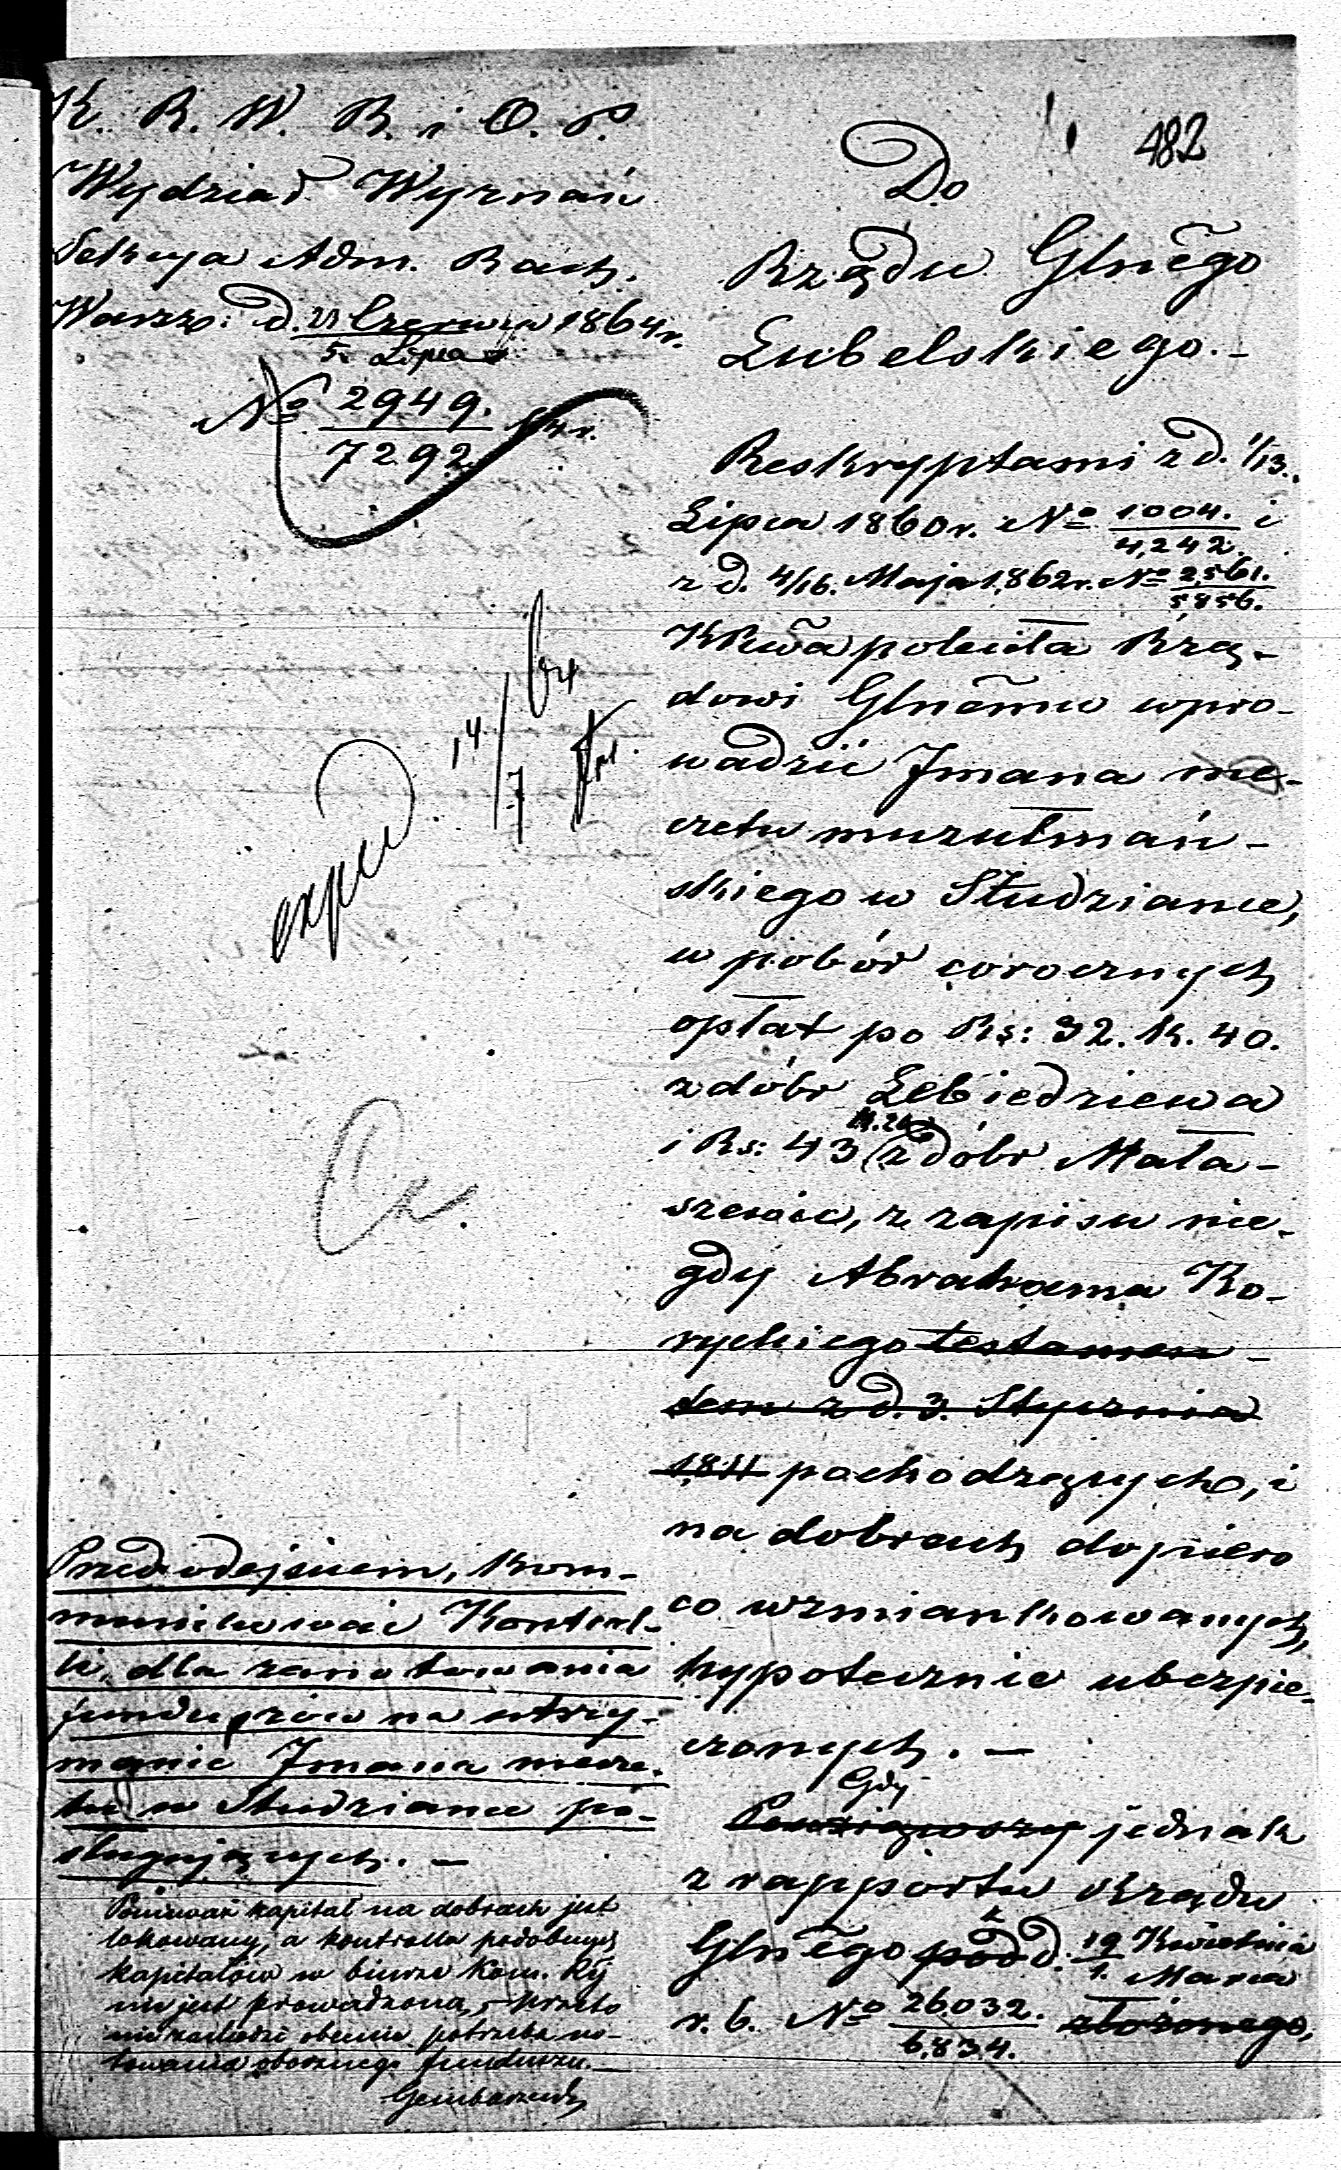 K. R. W. R. i O. P.
Wydział Wyznań
Sekcya Adm. Rach.
Warszo: d. 23 Czerwca 1864 r.
5. Lipca
No 2949.
7292.
expd 14/7 64
482
Do
Rządu Glnego
Lubelskiego.-
Reskryptami z d. 1/13.
Lipca 1860 r. No 1004. i
4,242.
z d. 4/16. Maja 1862 r. No 2,561.
5856.
KRwa poleciła Rzą-
dowi Glnemu wpro-
wadzić Imana me-
czetu muzułmań-
skiego w Studziance,
w pobór corocznych
opłat po Rs: 32. k. 40.
z dóbr Lebiedziewa
i Rs: 43 k. 20 z dóbr Mała-
szewic, z zapisu nie-
gdy Abrahama Ko-
ryckiego testamen-
tem z d. 3. Stycznia
1811 pochodzących, i
na dobrach dopiero
co wzmiankowanych,
hypotecznie ubezpie-
czonych. —
Gdy
Powziąwszy jednak
z rapportu Rządu
Glnego pod d. 19 Kwietnia
1. Maja
r. b. No 26032. złożonego,
6,834.
Przed odejściem, kom-
munikować Kontrol-
li, dla zanotowania
funduszów na utrzy-
manie Imana mecze-
tu w Studziance po-
sługujących. —
Ponieważ kapitał na dobrach jest
lokowany, a kontrolla podobnych
kapitałów w biurze Kom. Rz
nie jest prowadzona, przeto
nie zachodzi obecnie potrzeba no-
towania obocznego funduszu. —